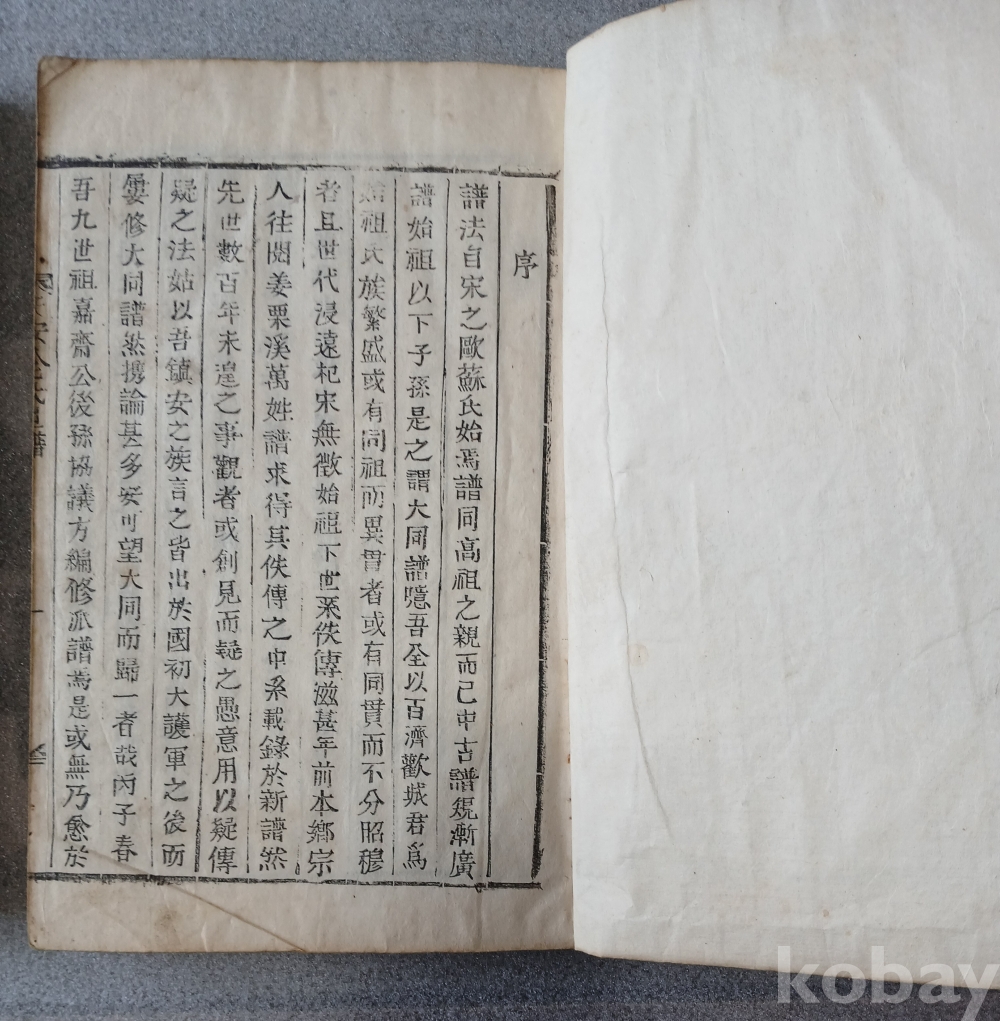 序
譜法自宋之歐蘇氏始焉譜同高祖之親而已中古譜規漸廣
譜始祖以下子孫是之謂大同譜噫吾全以百濟歡城君爲
始祖氏族繁盛或有同祖而異貫者或有同貫而不分昭穆
者且世代浸遠杞宋無徵始祖下世系佚傳滋甚年前本鄉宗
人往閱姜栗溪萬姓譜求得其佚傳之中系載錄於新譜然
先世數百年未遑之事觀者或創見而疑之愚意用以疑傳
疑之法姑以吾鎭安之族言之皆出於國初大護軍之後而
屢修大同譜然携論甚多安可望大同而歸一者哉丙子春
吾九世祖嘉齋公後孫協議方編修派譜焉是或無乃愈於
安全氏 譜
一
kobay